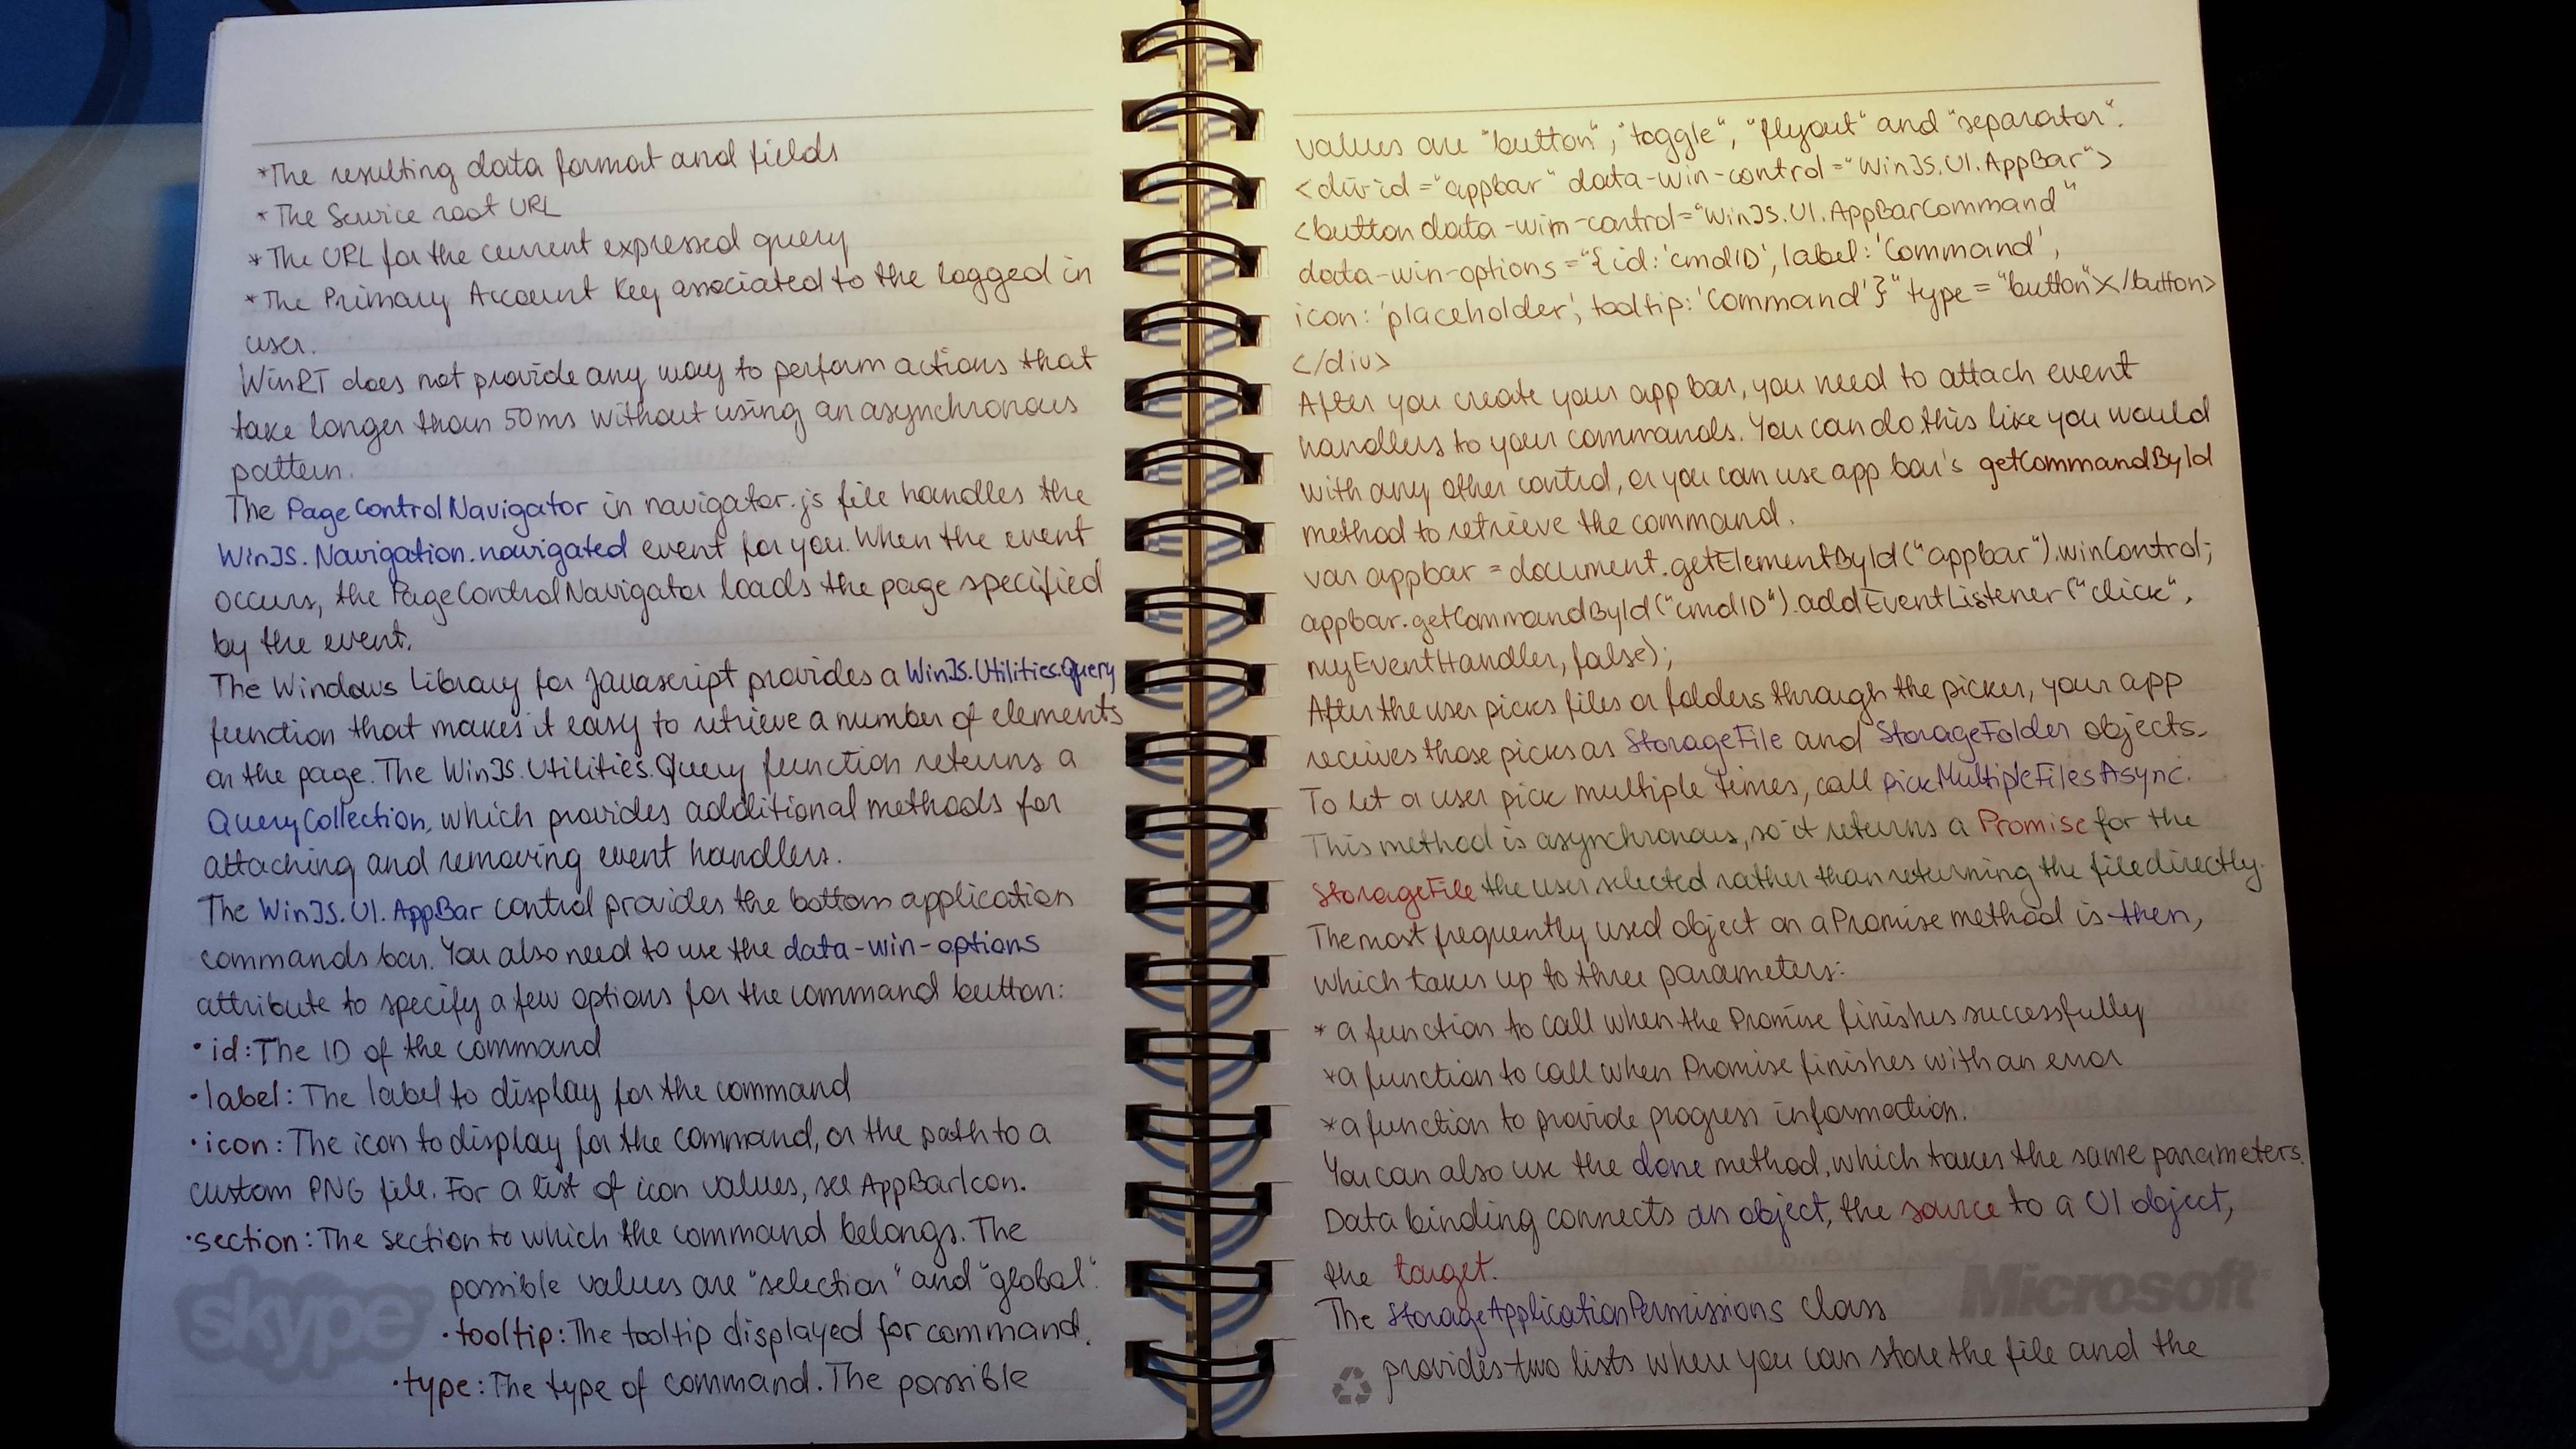 *The resulting data format and fields
*The Service root URL
*The URL for the current expressed query
*The Primary Account Key associated to the logged in
user.
WinRT does not provide any way to perform actions that
take longer than 50ms without using an asynchronous
pattern.
The PageControlNavigator in navigator.js file handles the
WinJS.Navigation.navigated event for you. When the event
occurs, the PageControlNavigator loads the page specified
by the event.
The Windows Library for Javascript provides a WinJS.Utilities.Query
function that makes it easy to retrieve a number of elements
on the page. The WinJS.Utilities.Query function returns a
QueryCollection, which provides additional methods for
attaching and removing event handlers.
The WinJS.UI.AppBar control provides the bottom application
commands bar. You also need to use the data-win-options
attribute to specify a few options for the command button:
•id:The ID of the command
•label: The label to display for the command
•icon: The icon to display for the command, or the path to a
custom PNG file. For a list of icon values, see AppBarIcon.
•section: The section to which the command belongs. The
possible values are "selection" and "global".
•tooltip: The tooltip displayed for command.
•type: The type of command. The possible
skype
values are "button", "toggle", "flyout" and "separator".
<div id="appbar" data-win-control="WinJS.UI.AppBar">
<button data-win-control="WinJS.UI.AppBarCommand"
data-win-options="{id:'cmdID', label:'Command',
icon:'placeholder', tooltip:'Command'}" type="button"></button>
</div>
After you create your app bar, you need to attach event
handlers to your commands. You can do this like you would
with any other control, or you can use app bar's getCommandById
method to retrieve the command.
var appbar = document.getElementById("appbar").winControl;
appbar.getCommandById("cmdID").addEventListener("click",
myEventHandler, false);
After the user picks files or folders through the picker, your app
receives those picks as StorageFile and StorageFolder objects.
To let a user pick multiple times, call pickMultipleFilesAsync.
This method is asynchronous, so it returns a Promise for the
StorageFile the user selected rather than returning the file directly.
The most frequently used object on a Promise method is then,
which takes up to three parameters:
* a function to call when the Promise finishes successfully
*a function to call when Promise finishes with an error
*a function to provide progress information.
You can also use the done method, which takes the same parameters.
Data binding connects an object, the source to a UI object,
the target.
The StorageApplicationPermissions class
provides two lists where you can store the file and the
Microsoft